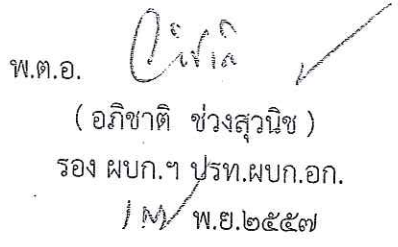 พ.ต.อ.
( อภิชาติ ช่วงสุวนิช )
รอง ผบก.ฯ ปรท.ผบก.อก.
พ.ย.๒๕๕๗